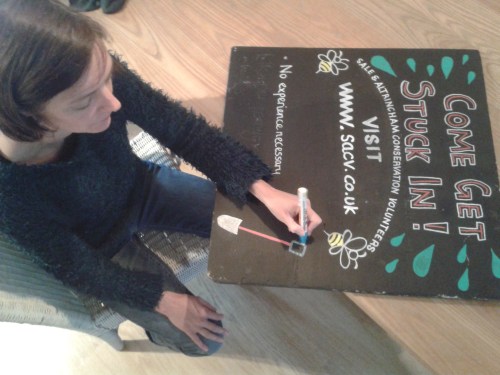 COME GET
STUCK IN!
SALE & ALTRINGHAM CONSERVATION VOLUNTEERS
VISIT
www.sacv.co.uk
• No experience necessary